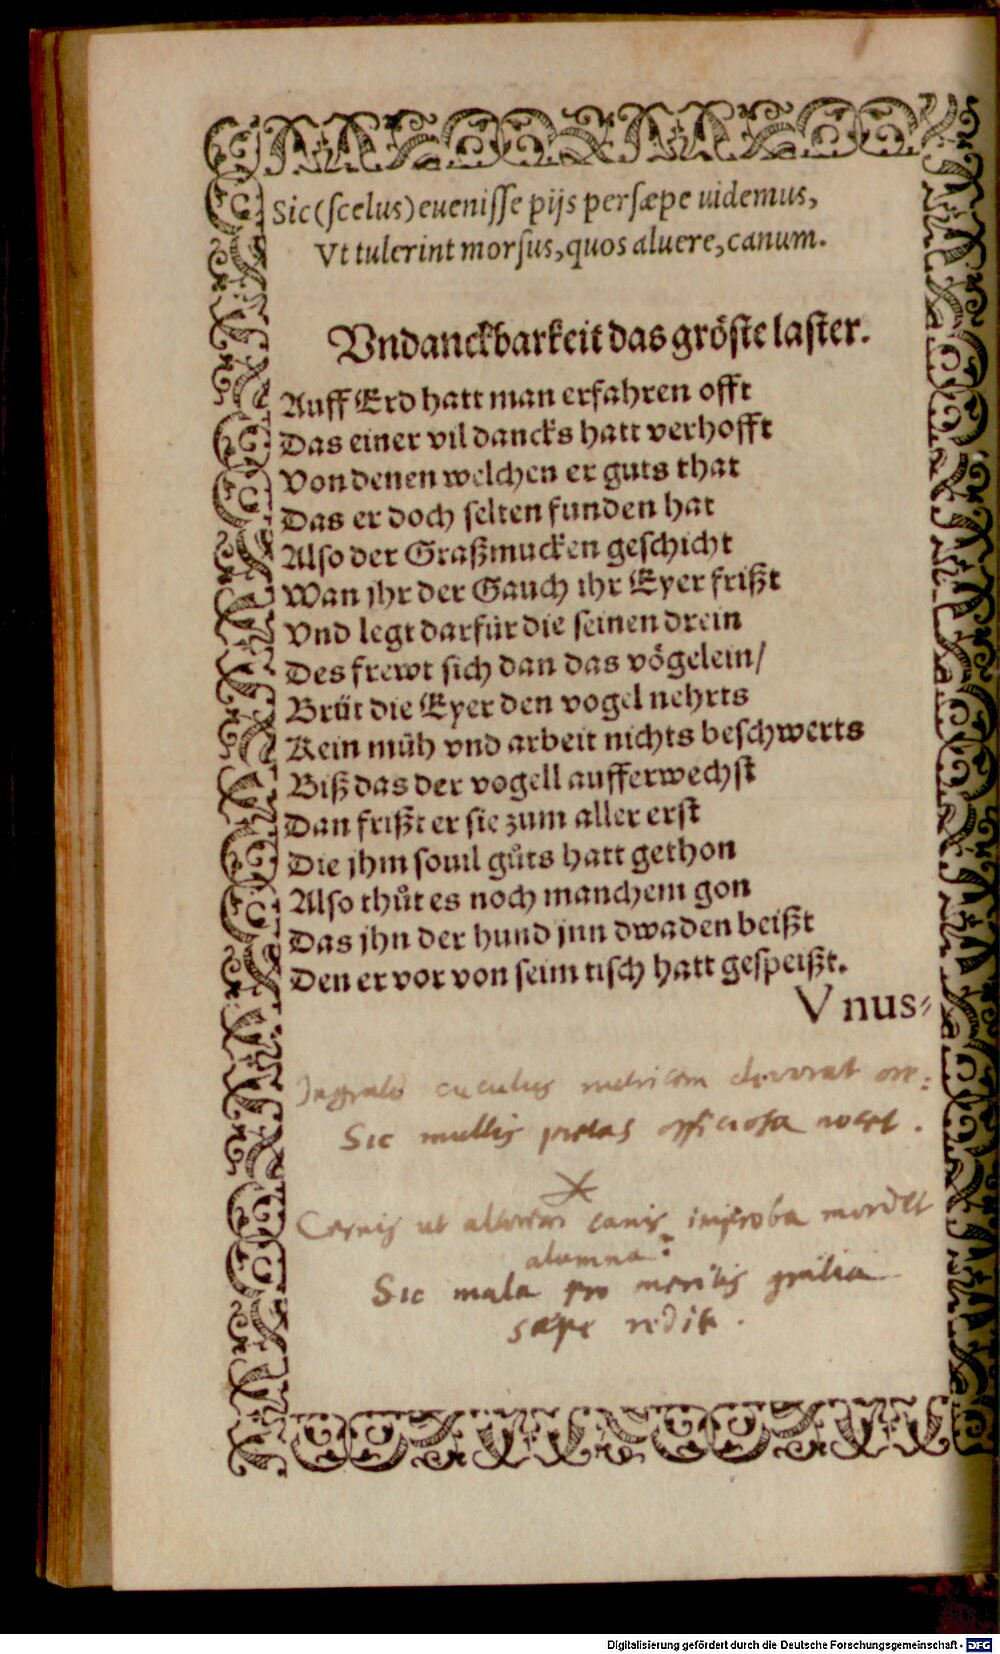 Sic (ſcelus) eueniſſe pijs perſæpe uidemus,
Vt tulerint morſus, quos aluere, canum.
Vndanckbarkeit das gröſte laſter.
Auff Erd hatt man erfahren offt
Das einer vil dancks hatt verhofft
Von denen welchen er guts that
Das er doch ſelten funden hat
Alſo der Graßmucken geſchicht
Wan jhr der Gauch ihr Eyer frißt
Vnd legt darfür die ſeinen drein
Des frewt ſich dan das vögelein/
Brüt die Eyer den vogel nehrts
Kein müh vnd arbeit nichts beſchwerts
Biß das der vogell aufferwechſt
Dan frißt er ſie zum aller erſt
Die jhm ſouil gůts hatt gethon
Alſo thůt es noch manchem gon
Das jhn der hund jnn dwaden beißt
Den er vor von ſeim tiſch hatt geſpeißt.
Vnus-
Ingrato cuculus devorat ore:
Sic multis pietas officioſa nocet.
Cernis ut altorem canis improba mordet
alumna:
Sic mala pro meritis gratia
sæpe redit.
Digitalisierung gefördert durch die Deutsche Forschungsgemeinschaft - DFG